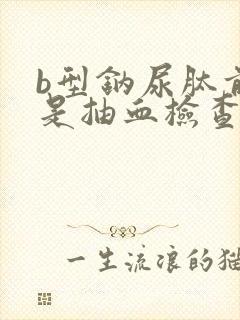 b型鈉尿肽前
是抽血檢查
一生流浪的猫